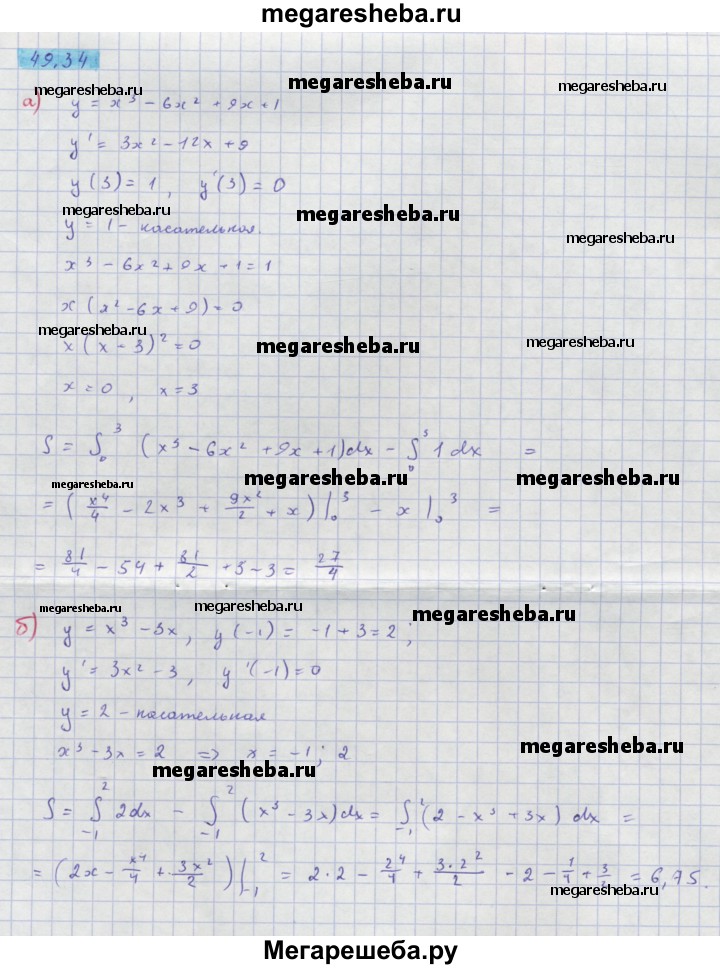 megaresheba.ru
49.34
megaresheba.ru
megaresheba.ru
а) y = x³ - 6x² + 9x + 1
y' = 3x² - 12x + 9
megaresheba.ru
y(3) = 1, y'(3) = 0
megaresheba.ru
megaresheba.ru
y = 1 - касательная.
megaresheba.ru
x³ - 6x² + 9x + 1 = 1
x(x² - 6x + 9) = 0
megaresheba.ru
x(x - 3)² = 0
megaresheba.ru
megaresheba.ru
x = 0, x = 3
S = ∫₀³ (x³ - 6x² + 9x + 1)dx - ∫₀³ 1 dx =
megaresheba.ru
megaresheba.ru
megaresheba.ru
= (x⁴/4 - 2x³ + 9x²/2 + x)|₀³ - x|₀³ =
= 81/4 - 54 + 81/2 + 3 - 3 = 27/4
megaresheba.ru
megaresheba.ru
megaresheba.ru
б) y = x³ - 3x, y(-1) = -1 + 3 = 2;
y' = 3x² - 3, y'(-1) = 0
y = 2 - касательная
x³ - 3x = 2 => x = -1; 2
megaresheba.ru
megaresheba.ru
S = ∫₋₁² 2dx - ∫₋₁² (x³ - 3x)dx = ∫₋₁² (2 - x³ + 3x) dx =
= (2x - x⁴/4 + 3x²/2)|₋₁² = 2·2 - 2⁴/4 + 3·2²/2 - 2 - 1/4 + = 6,75.
megaresheba.ru
Мегарешеба.ру